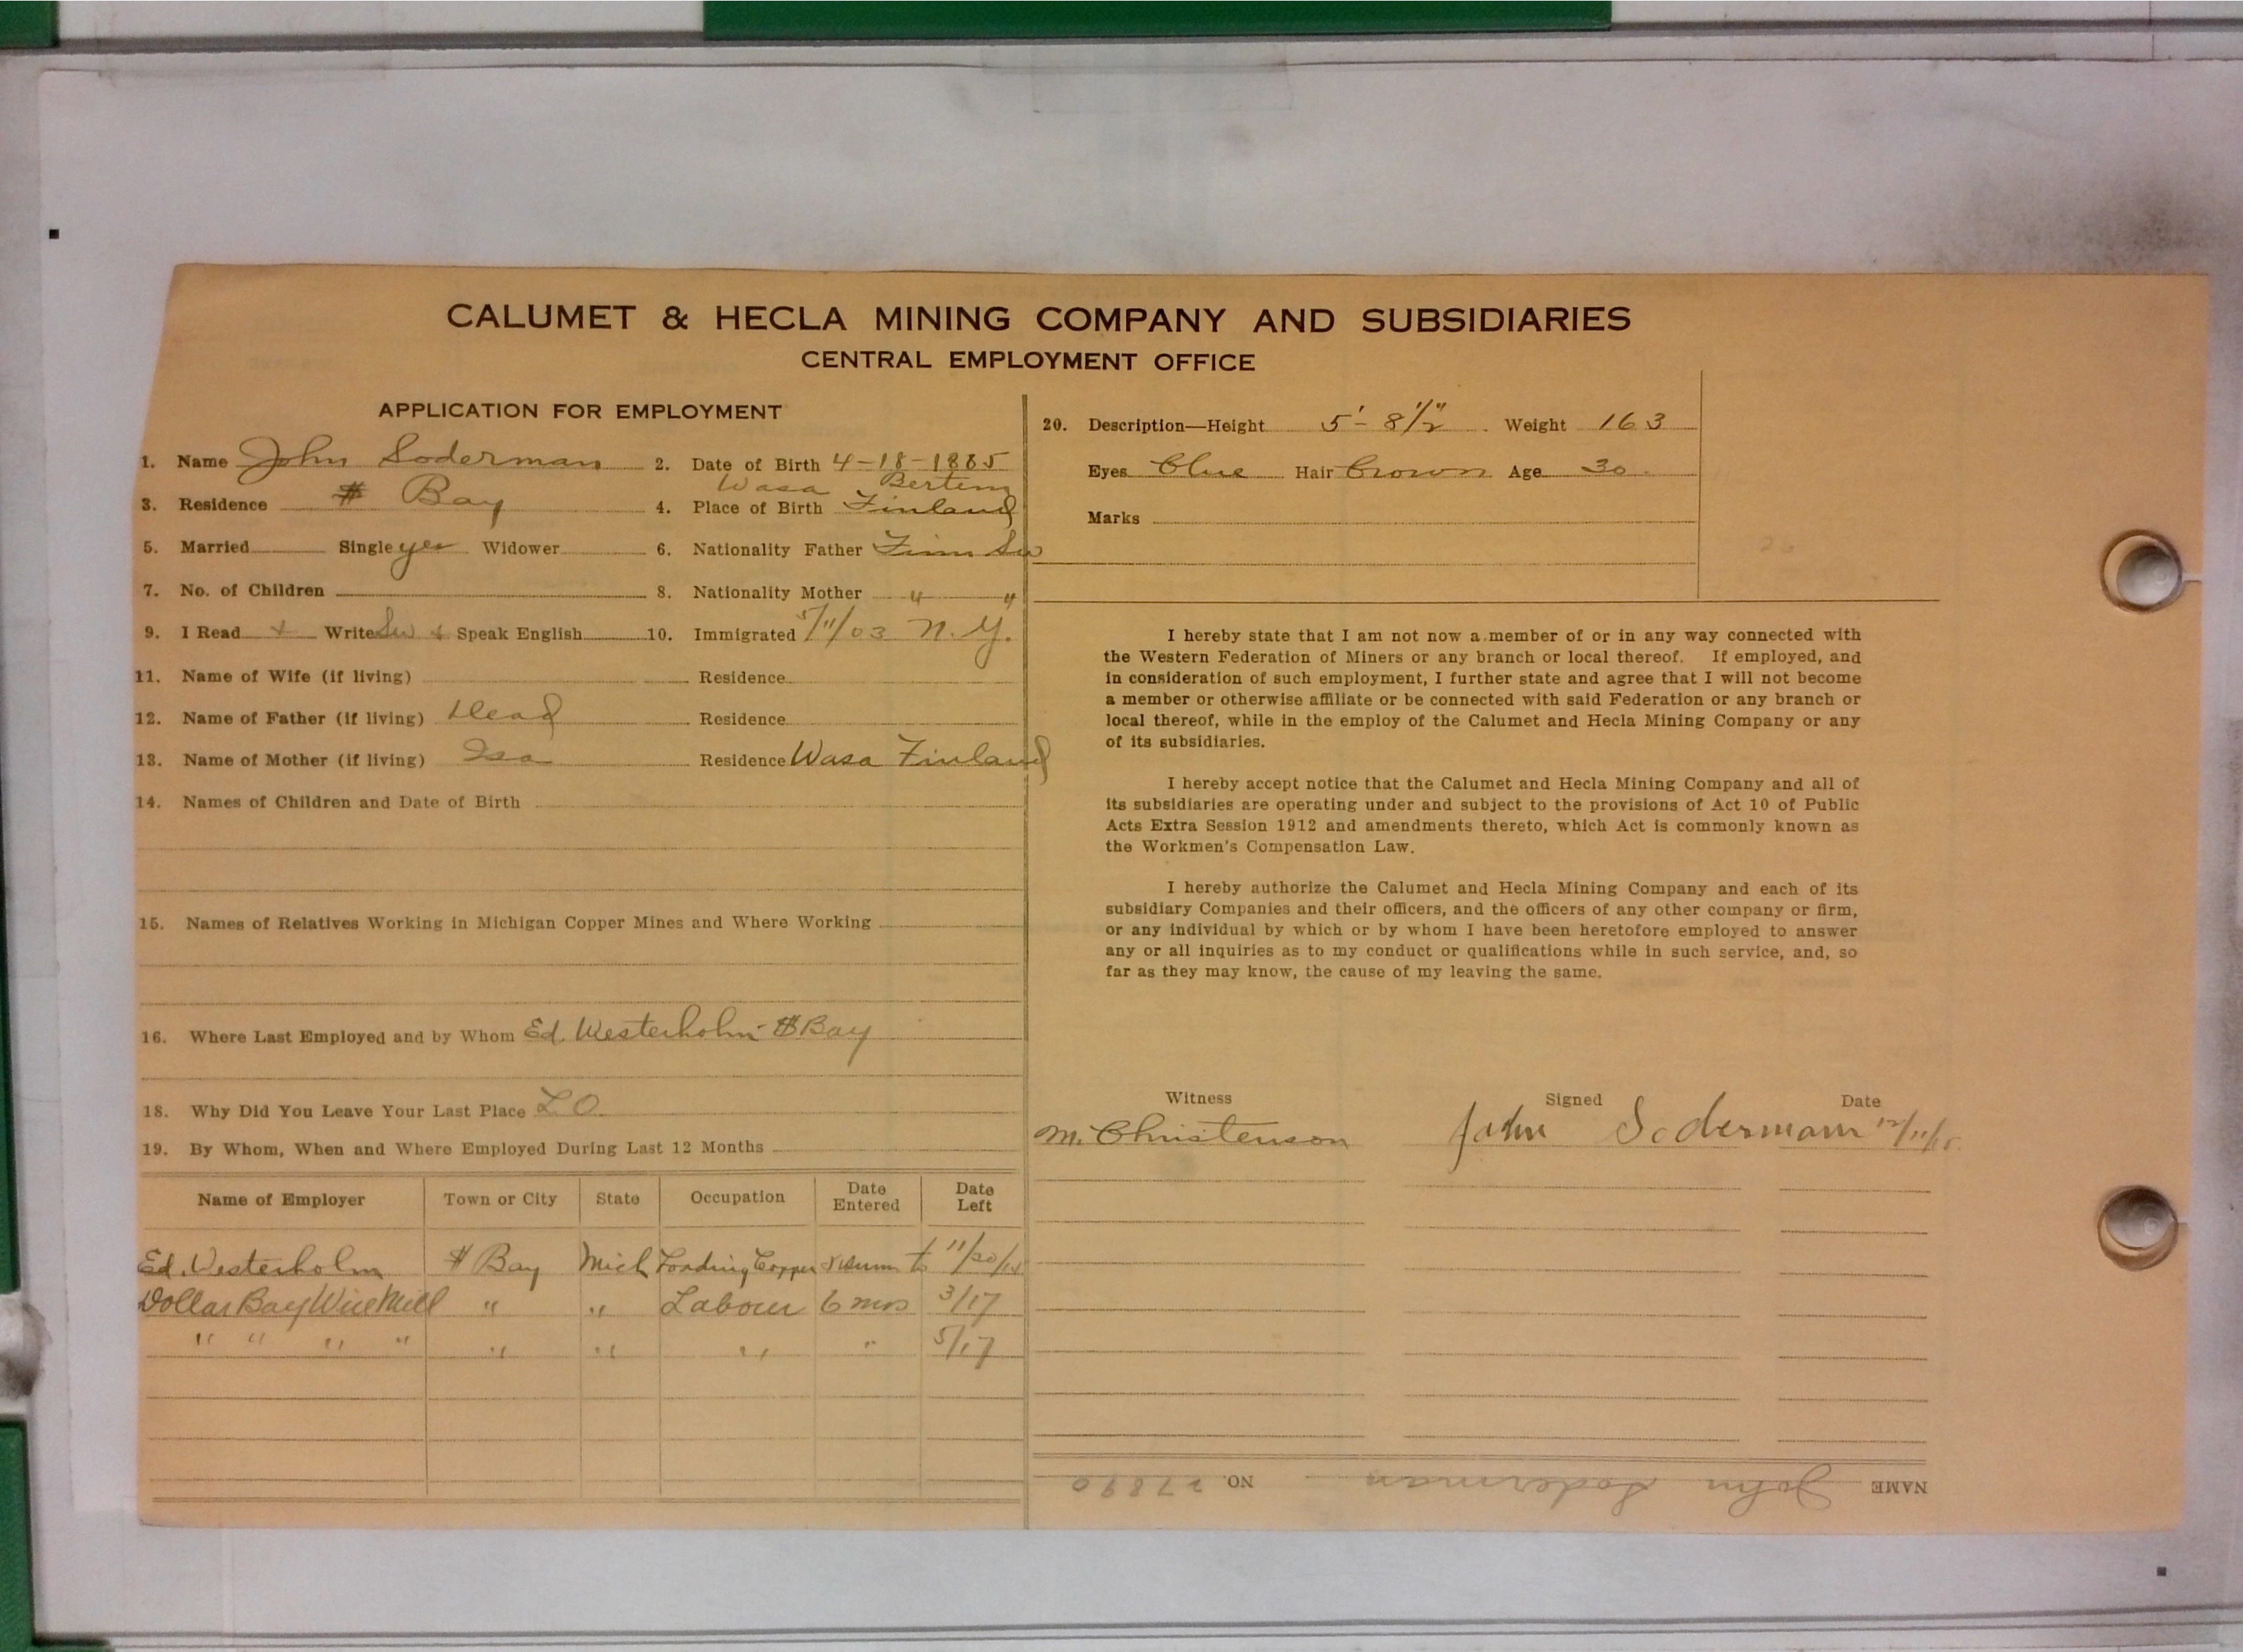 CALUMET & HECLA MINING COMPANY AND SUBSIDIARIES
CENTRAL EMPLOYMENT OFFICE
APPLICATION FOR EMPLOYMENT
1. Name John Soderman 2. Date of Birth 4-18-1885
Wasa
3. Residence $ Bay 4. Place of Birth Finland
5. Married Single yes Widower 6. Nationality Father Finn Sw
7. No. of Children 8. Nationality Mother " "
9. I Read + Write Sw + Speak English 10. Immigrated 5/11/03 N.Y.
11. Name of Wife (if living) Residence
12. Name of Father (if living) Dead Residence
13. Name of Mother (if living) Isa Residence Wasa Finland
14. Names of Children and Date of Birth
15. Names of Relatives Working in Michigan Copper Mines and Where Working
16. Where Last Employed and by Whom Ed. Westerholm - $ Bay
18. Why Did You Leave Your Last Place L.O.
19. By Whom, When and Where Employed During Last 12 Months
Name of Employer Town or City State Occupation Date Entered Date Left
Ed. Westerholm $ Bay Mich Loading Copper to
Dollar Bay Wire Mill " " Labour 6 mos 3/17
" " " " " " " " 5/17
20. Description—Height 5'-8 1/2" Weight 163
Eyes Blue Hair Brown Age 30
Marks
I hereby state that I am not now a member of or in any way connected with
the Western Federation of Miners or any branch or local thereof. If employed, and
in consideration of such employment, I further state and agree that I will not become
a member or otherwise affiliate or be connected with said Federation or any branch or
local thereof, while in the employ of the Calumet and Hecla Mining Company or any
of its subsidiaries.
I hereby accept notice that the Calumet and Hecla Mining Company and all of
its subsidiaries are operating under and subject to the provisions of Act 10 of Public
Acts Extra Session 1912 and amendments thereto, which Act is commonly known as
the Workmen's Compensation Law.
I hereby authorize the Calumet and Hecla Mining Company and each of its
subsidiary Companies and their officers, and the officers of any other company or firm,
or any individual by which or by whom I have been heretofore employed to answer
any or all inquiries as to my conduct or qualifications while in such service, and, so
far as they may know, the cause of my leaving the same.
Witness Signed Date
M. Christenson John Soderman
NAME John Soderman NO. 27890